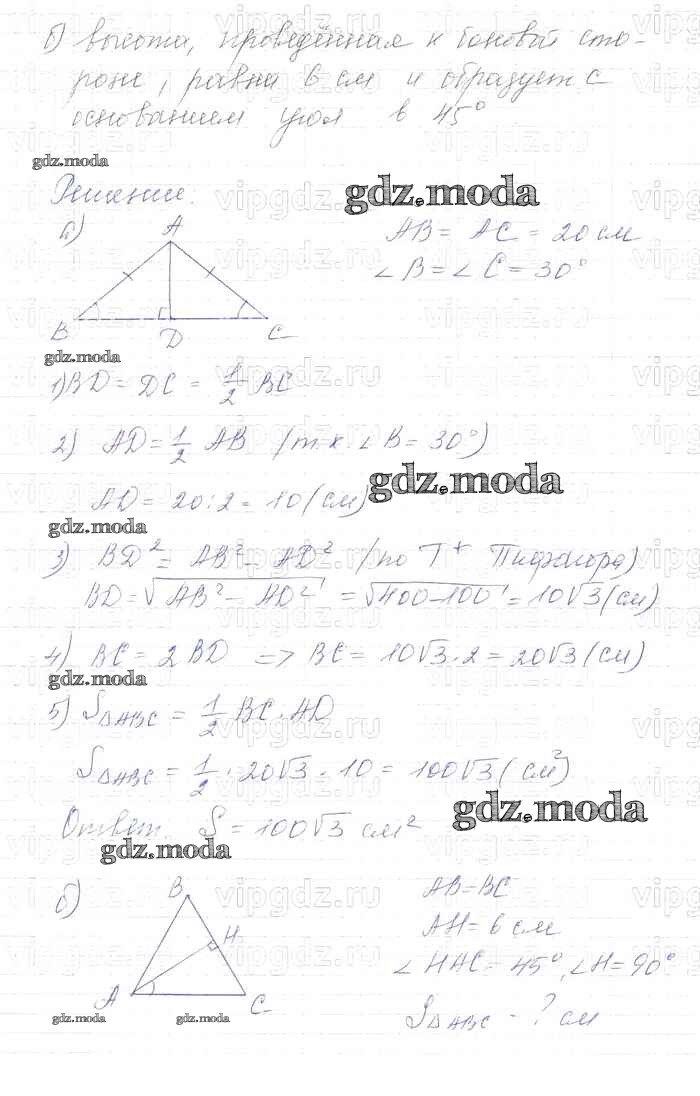 б) высота, проведённая к боковой сто-
роне, равна 6 см и образует с
основанием угол в 45°
gdz.moda
Решение.
gdz.moda
а)
A
B
D
C
AB = AC = 20 см
∠B = ∠C = 30°
gdz.moda
1) BD = DC = 1/2 BC
2) AD = 1/2 AB (т.к. ∠B = 30°)
gdz.moda
AD = 20 : 2 = 10 (см)
gdz.moda
3) BD² = AB² - AD² (по Т Пифагора)
BD = √AB² - AD² = √400-100 = 10√3 (см)
4) BC = 2BD => BC = 10√3 · 2 = 20√3 (см)
gdz.moda
5) S△ABC = 1/2 BC · AD
S△ABC = 1/2 · 20√3 · 10 = 100√3 (см²)
gdz.moda
Ответ. S = 100√3 см²
gdz.moda
б)
B
H
A
C
AB = BC
AH = 6 см
∠HAC = 45°, ∠H = 90°
S△ABC - ? см
gdz.moda
gdz.moda
vipgdz.ru